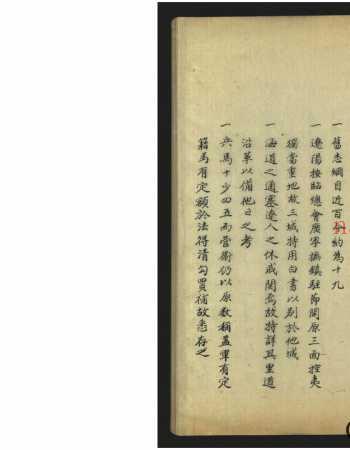 一舊志綱目近百今約為十九
一遼陽按臨總會廣寧撫鎮駐節開原三面控夷
獨當重地故三城特用白書以別於他城
一海道之通塞遼人之休戚関焉故特詳其里道
沿革以備他日之考
一兵馬十少四五而營衛仍以原数稱盖軍有定
籍馬有定額於法得清勾買補故悉存之